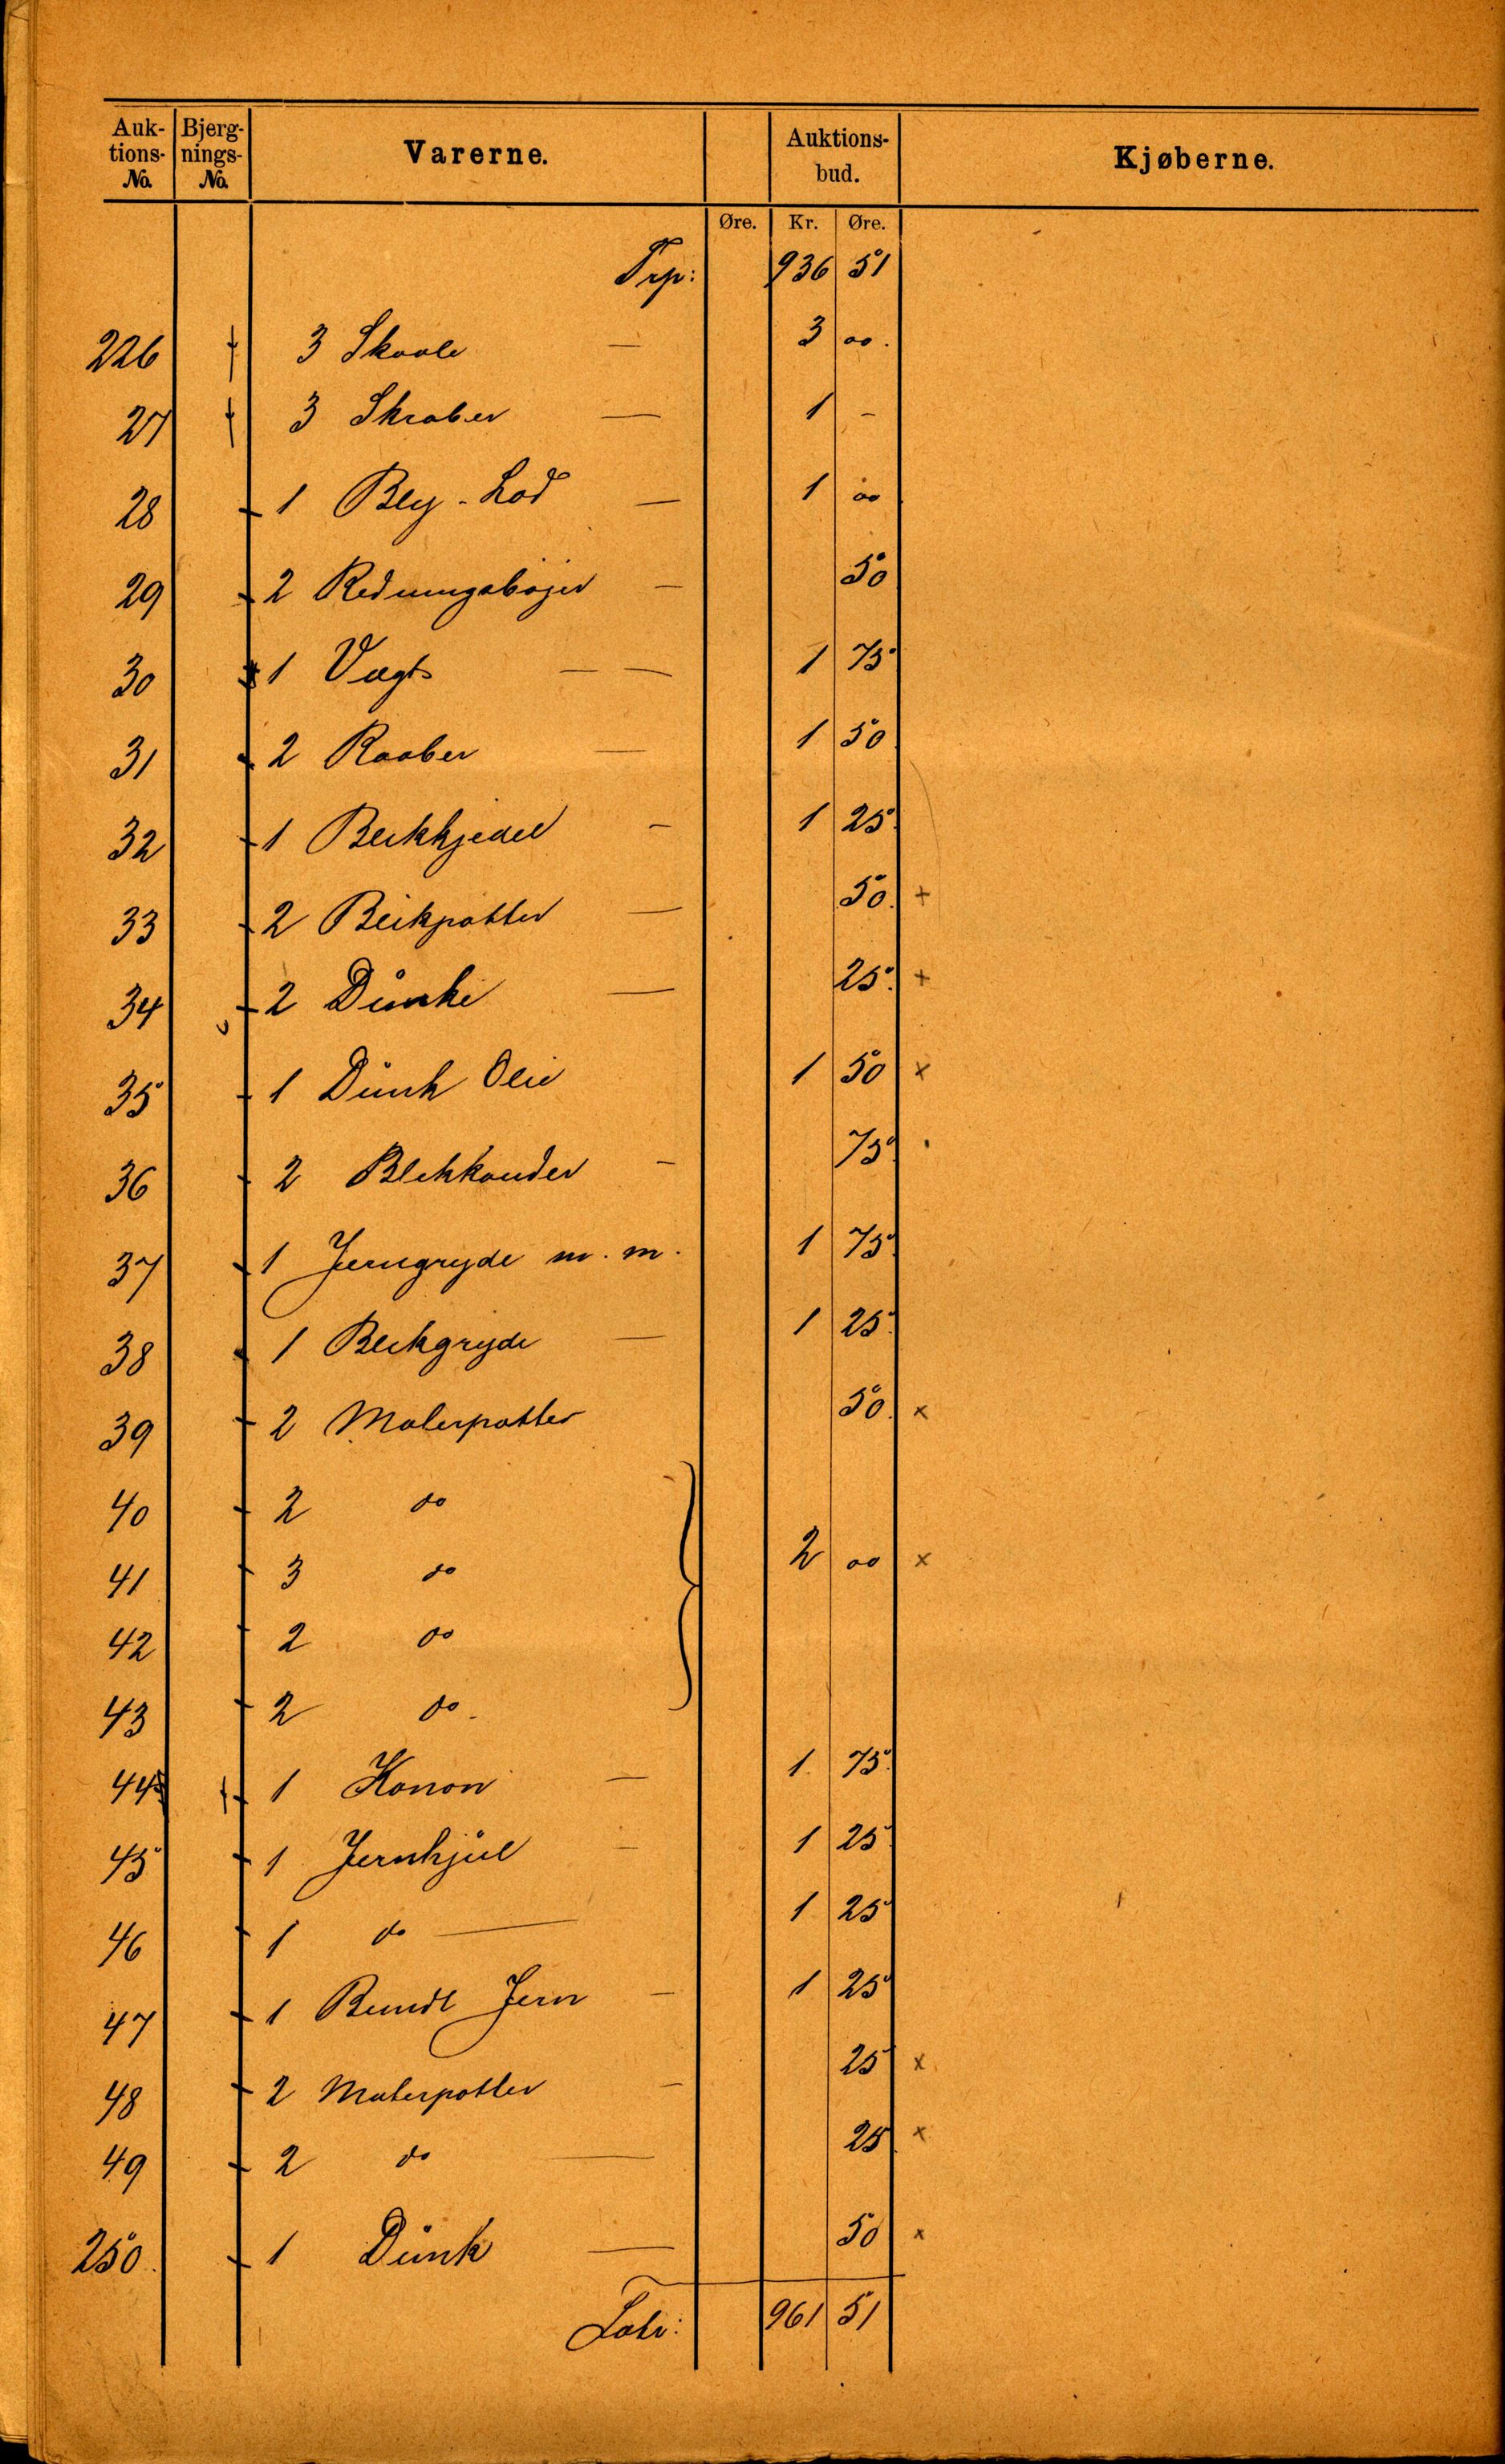 Auk- Bjerg- Varerne. Auktions- Kjøberne.
tions- nings- bud.
No. No.
Øre. Kr. Øre.
Trp: 936 51
226 3 Skaale — 3 00.
27 3 Skraber — 1 –
28 1 Bly-Lod — 1 00
29 2 Redningsbøjer — 50
30 1 Vægt — — 1 75
31 2 Raaber — 1 50
32 1 Bekkjedel — 1 25
33 2 Bekpotter — 50. +
34 2 Dunke — 25. +
35 1 Dunk Olie 1 50 x
36 2 Blikkander — 75.
37 1 Jerngryde m. m. 1 75.
38 1 Bekgryde — 1 25.
39 2 Malerpotter 50. x
40 2 do
41 3 do 2 00 x
42 2 do
43 2 do
44 1 Kanon — 1. 75.
45 1 Jernhjul — 1 25.
46 1 do — 1 25
47 1 Bundt Jern — 1 25
48 2 Malerpotter — 25 x
49 2 do — 25 x
250. 1 Dunk — 50 x
Latr: 961 51